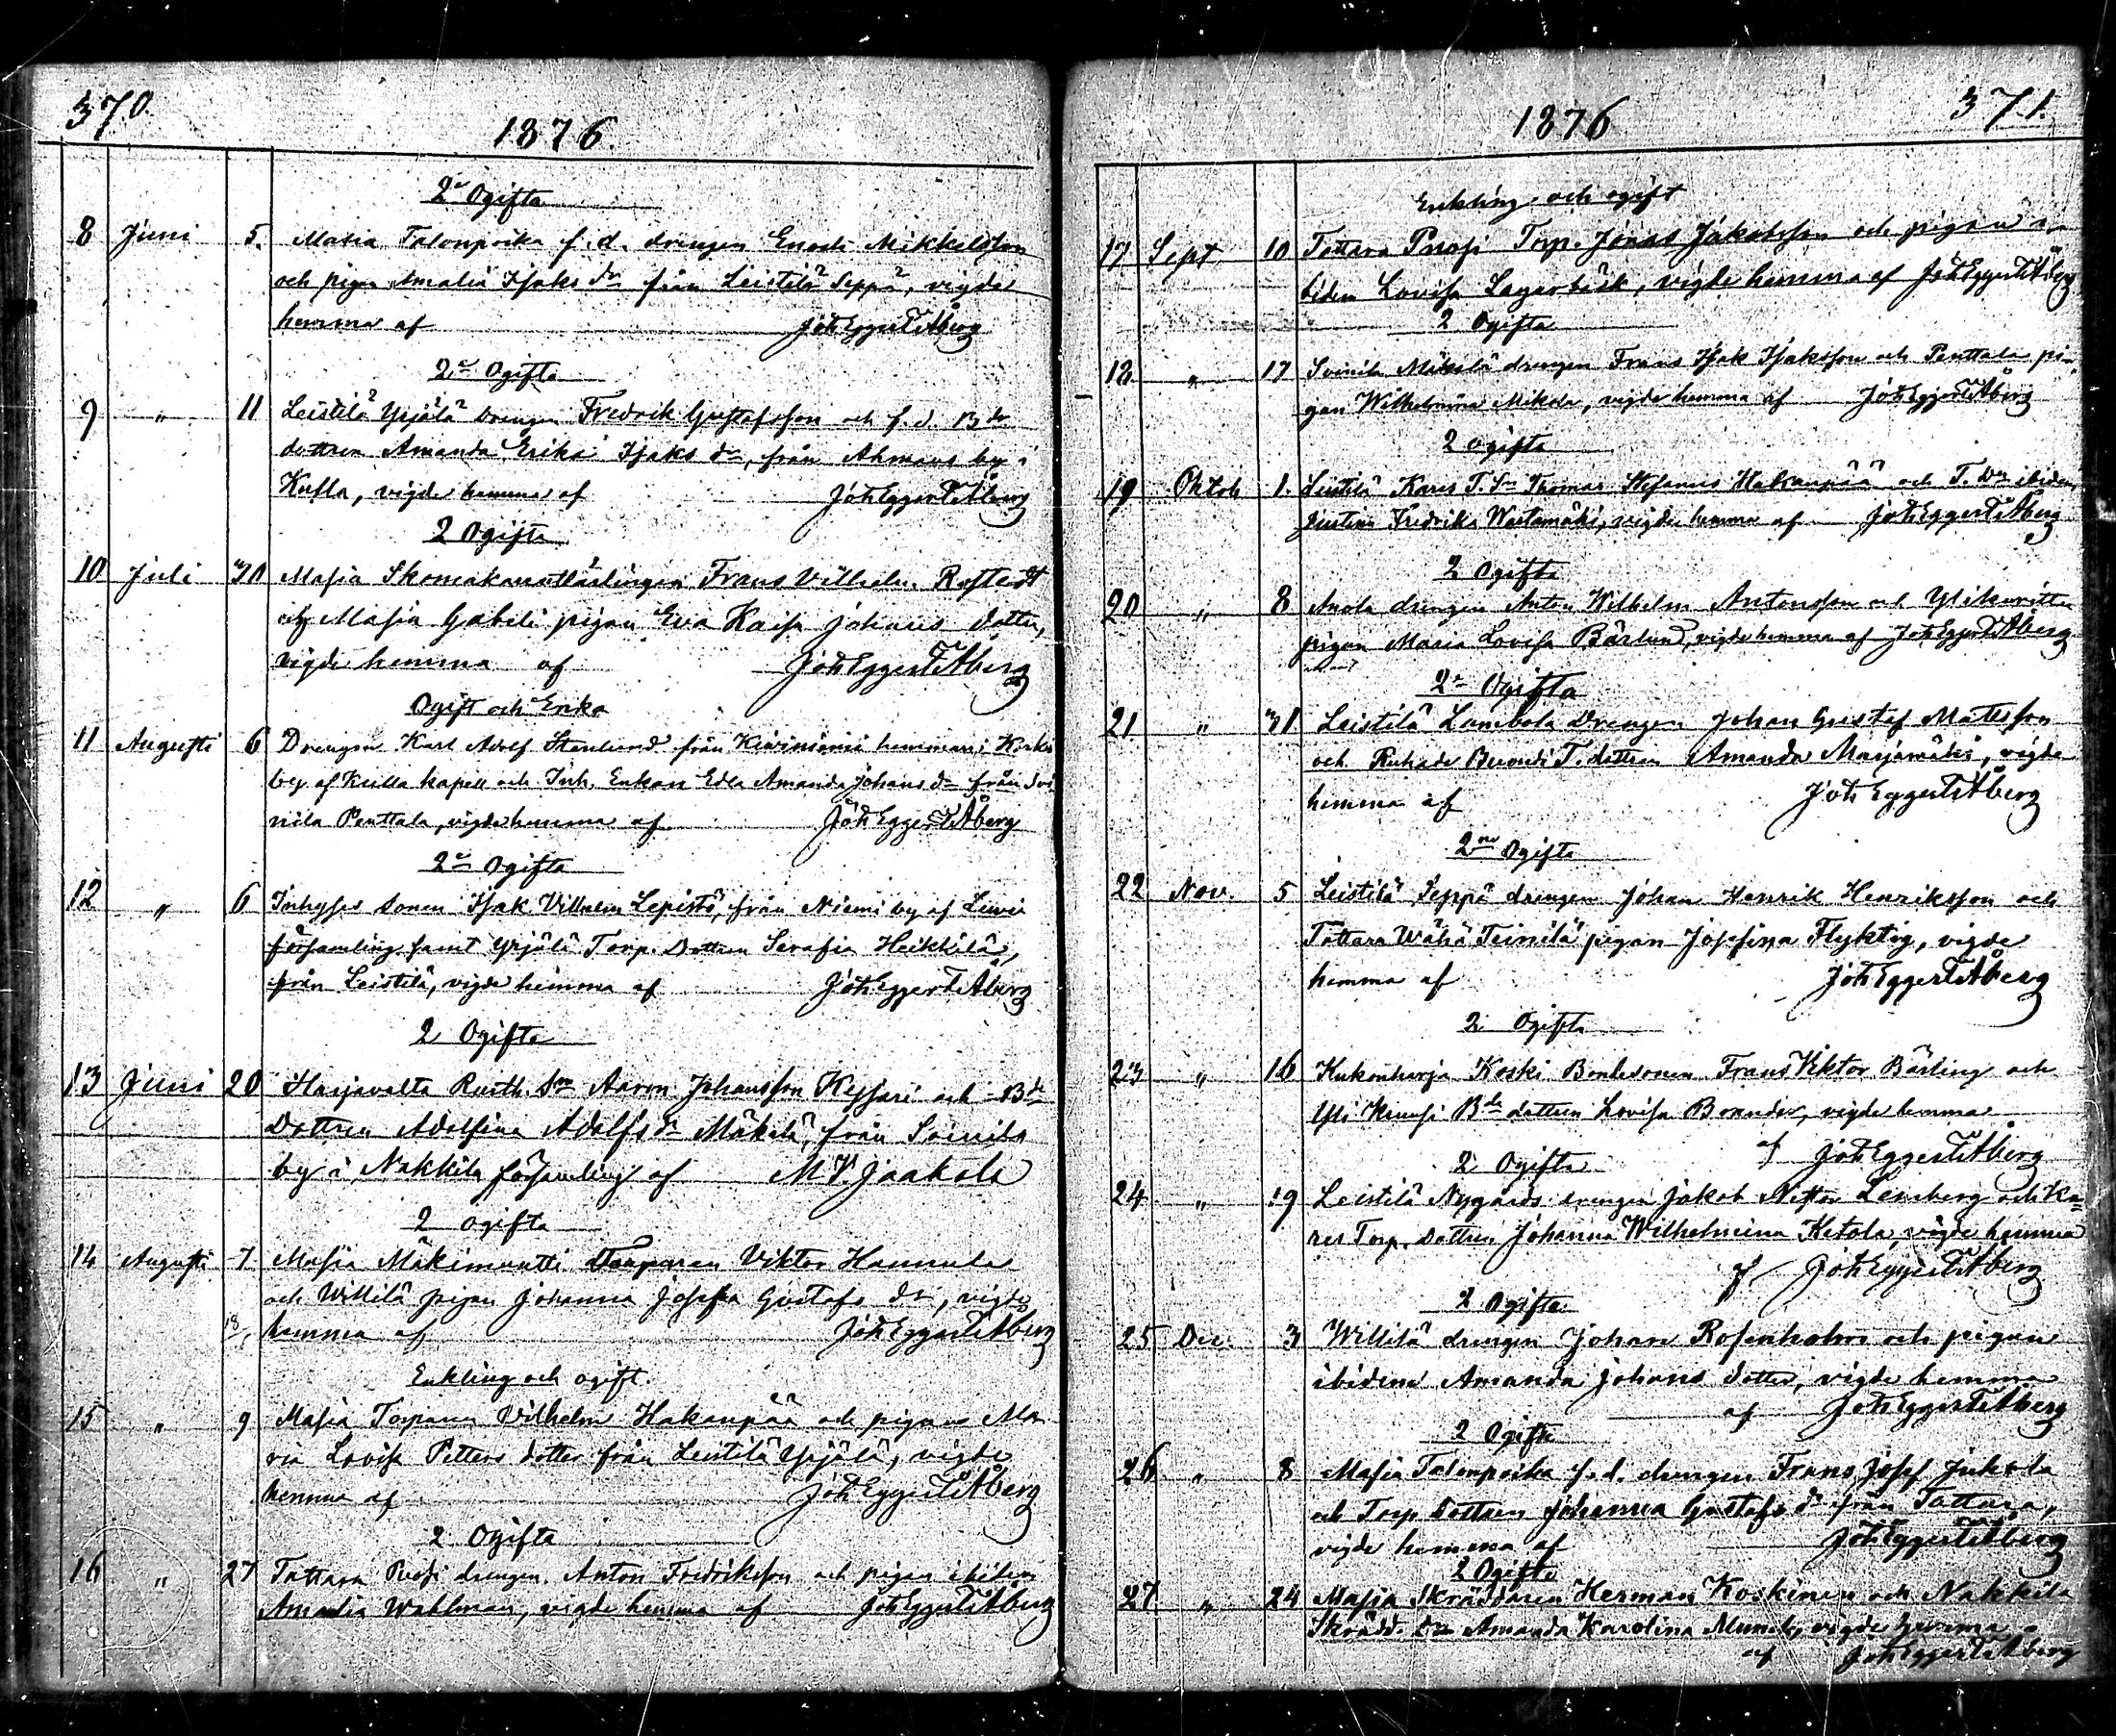 370.
1876.
2ne Ogifta
8 Juni 5. Masia Talonpoika f. d. drengen Enoch Mikkelsson
och pigan Amalia Isaks dr från Leistilä Seppä, vigde
hemma af Joh Eggert Åberg
2ne Ogifta
9 " 11 Leistilä Yrjälä drengen Fredrik Gustafsson och f. d. Bde
dottren Amanda Erika Isaks dr, från Ahmaus by i
Kulla, vigde hemma af Joh Eggert Åberg
2 Ogifta
10 Juli 30 Masia Skomakarelärlingen Frans Vilhelm Rostedt
och Masia Gabeli pigan Eva Kaisa Johans dotter,
vigde hemma af Joh Eggert Åberg
Ogift och Enka
11 Augusti 6 Drengen Karl Adolf Stenlund från Kiviniemi hemman i Koski
by af Kulla kapell och Inh. Enkan Edla Amanda Johans dr från Soi
nila Penttala, vigde hemma af Joh Eggert Åberg
2ne Ogifta
12 " 6 Inhyses sonen Isak Vilhelm Lepistö, från Niemi by af Luvia
församling samt Yrjälä Torp. Dottren Serafia Heikkilä,
från Leistilä, vigde hemma af Joh Eggert Åberg
2 Ogifta
13 Juni 20 Harjavalta Rusth. Sn Aaron Johansson Kessari och Bde
Dottren Adolfina Adolfs dr Mäkelä, från Soinila
by i Nakkila församling af M V. Jaakola
2 ogifta
14 Augusti 7 Masia Mäkimantti Torparen Viktor Hannula
och Willilä pigan Johanna Josefa Gustafs dr, vigde
18 hemma af Joh Eggert Åberg
Enkling och ogift.
15 " 9 Masia Torparen Vilhelm Hakanpää och pigan Ma-
ria Lovisa Petters dotter från Leistilä Yrjälä, vigde
hemma af Joh Eggert Åberg
2 Ogifta
16 " 27 Tattara Puosi drengen Anton Fredriksson och pigan ibidem
Amanda Wahlman, vigde hemma af Joh Eggert Åberg
1876
371.
Enkling och ogift
17 Sept 10 Tattara Puosi Torp. Jonas Jakobsson och pigan i-
bidem Lovisa Lagerbäck, vigde hemma af Joh Eggert Åberg
2 Ogifta
18 " 17 Soinila Mäkelä drengen Frans Isak Isaksson och Penttala pi-
gan Wilhelmina Mikola, vigde hemma af Joh Eggert Åberg
2 ogifta
19 Oktob 1. Leistilä Kares T. Sn Thomas Stefanus Hakanpää och T. Dn ibidem
Justina Fredrika Wartamäki, vigde hemma af Joh Eggert Åberg
2 Ogifta
20 " 8 Anola drengen Anton Wilhelm Antonsson och
pigan Maria Lovisa Bärlund, vigde hemma af Joh Eggert Åberg
2ne Ogifta
21 " 31 Leistilä Lambola Drengen Johan Gustaf Matesson
och Ruhade T. dottren Amanda Marjamäki, vigde
hemma af Joh Eggert Åberg
2ne Ogifta
22 Nov. 5 Leistilä Seppä drengen Johan Henrik Henriksson och
Tattara Wähä Teinilä pigan Josefina Flyktig, vigde
hemma af Joh Eggert Åberg
2 Ogifta
23 " 16 Kukonharja Koski Bondesonen Frans Viktor Bärling och
Yli Bde dottren Lovisa, vigde hemma
af Joh Eggert Åberg
2 Ogifta
24 " 19 Leistilä Nygårds drengen Jakob Lensberg och Ka-
res Torp. dottren Johanna Wilhelmina Ketola, vigde hemma
af Joh Eggert Åberg
2 Ogifta
25 Dec. 3 Willilä drengen Johan Rosenholm och pigan
ibidem Amanda Johans dotter, vigde hemma
af Joh Eggert Åberg
2 Ogifta
26 " 8 Masia Talonpoika f. d. drengen Frans Josef Jukola
och Torp. dottren Johanna Gustafs dr från Tattara,
vigde hemma af Joh Eggert Åberg
2 Ogifta
27 " 24 Masia Skräddaren Herman Koskinen och Nakkila
Skrädd. Dn Amanda Karolina Munck, vigde hemma
af Joh Eggert Åberg